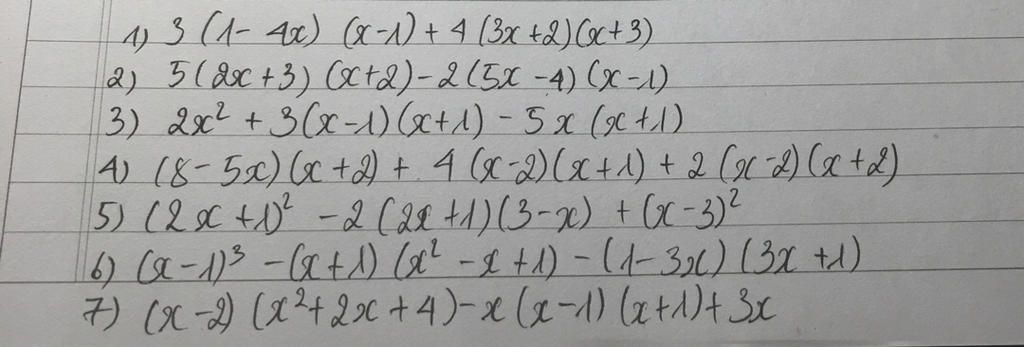 1) 3 (1 - 4x) (x-1) + 4 (3x+2)(x+3)
2) 5(2x+3) (x+2) - 2(5x -4) (x-1)
3) 2x² + 3(x-1)(x+1) - 5x (x+1)
4) (8 - 5x)(x+2) + 4 (x-2)(x+1) + 2 (x-2)(x+2)
5) (2x +1)² - 2 (2x+1)(3-x) + (x-3)²
6) (x-1)³ - (x+1) (x² - x +1) - (1-3x) (3x +1)
7) (x-2) (x²+2x+4) - x (x-1) (x+1) + 3x